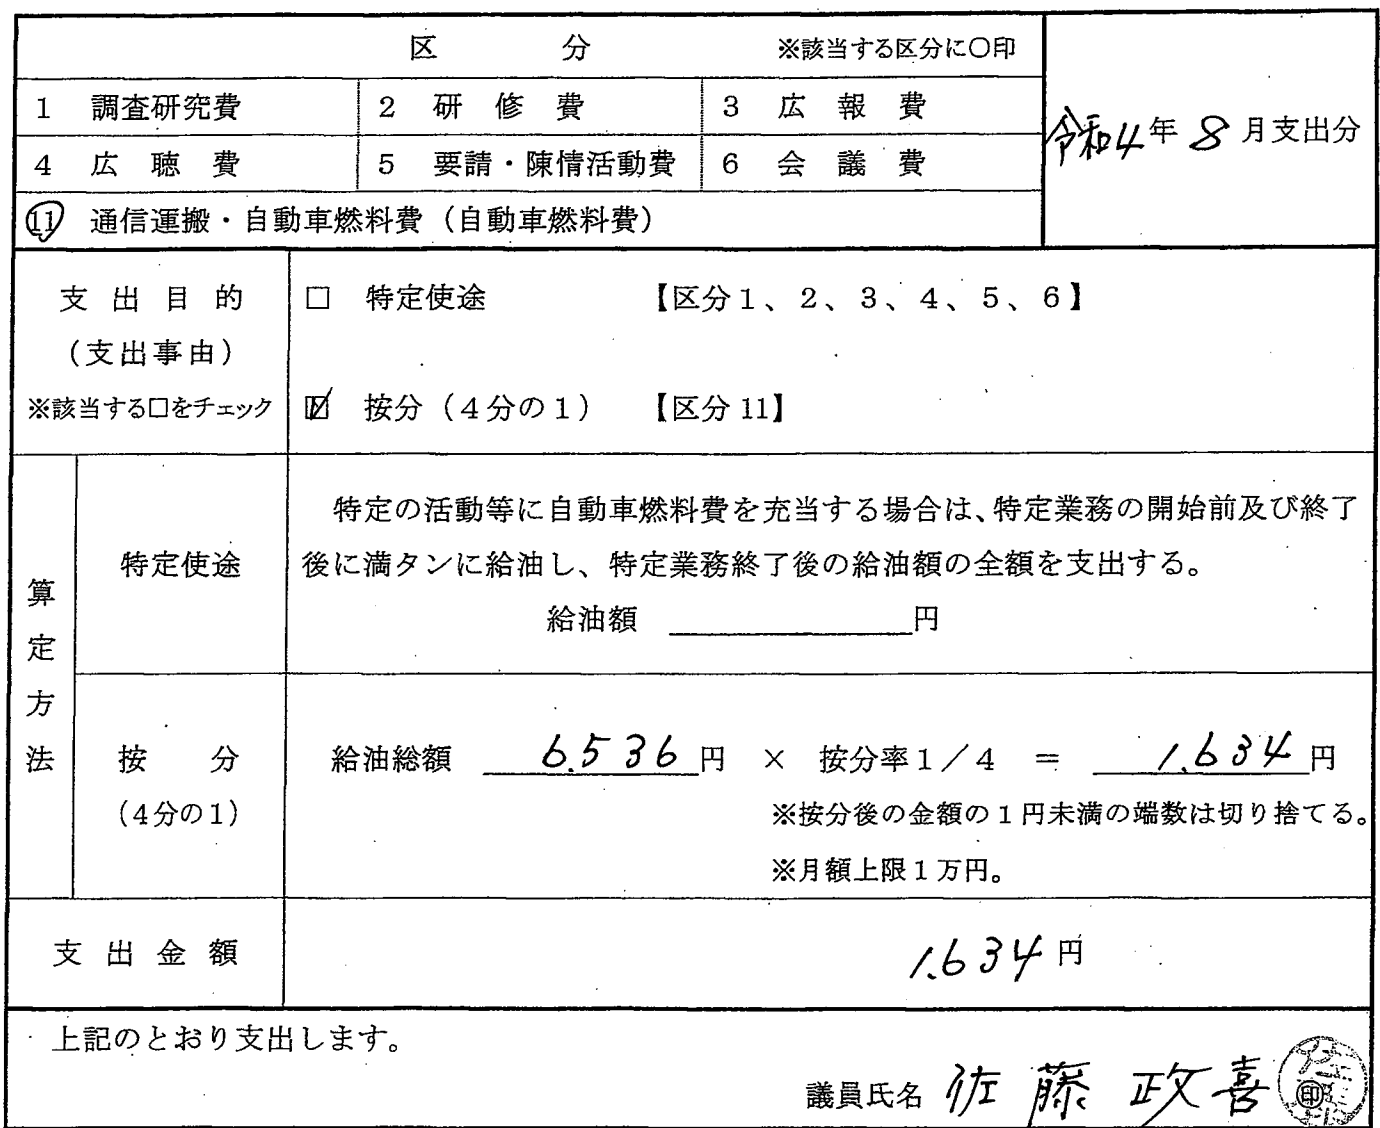 区　　　分　　※該当する区分に〇印
1　調査研究費　2　研　修　費　3　広　報　費
令和4年 8 月支出分
4　広　聴　費　5　要請・陳情活動費　6　会　議　費
⑪　通信運搬・自動車燃料費（自動車燃料費）
支 出 目 的　□　特定使途　【区分1、2、3、4、5、6】
（支出事由）
※該当する口をチェック　☑　按分（4分の1）　【区分 11】
算定方法
特定使途
特定の活動等に自動車燃料費を充当する場合は、特定業務の開始前及び終了
後に満タンに給油し、特定業務終了後の給油額の全額を支出する。
給油額　＿＿＿＿円
按　　分　給油総額　6.536円　×　按分率1／4　＝　1.634円
（4分の1）　※按分後の金額の1円未満の端数は切り捨てる。
※月額上限1万円。
支 出 金 額　1.634円
上記のとおり支出します。
議員氏名　佐藤 政喜　㊞